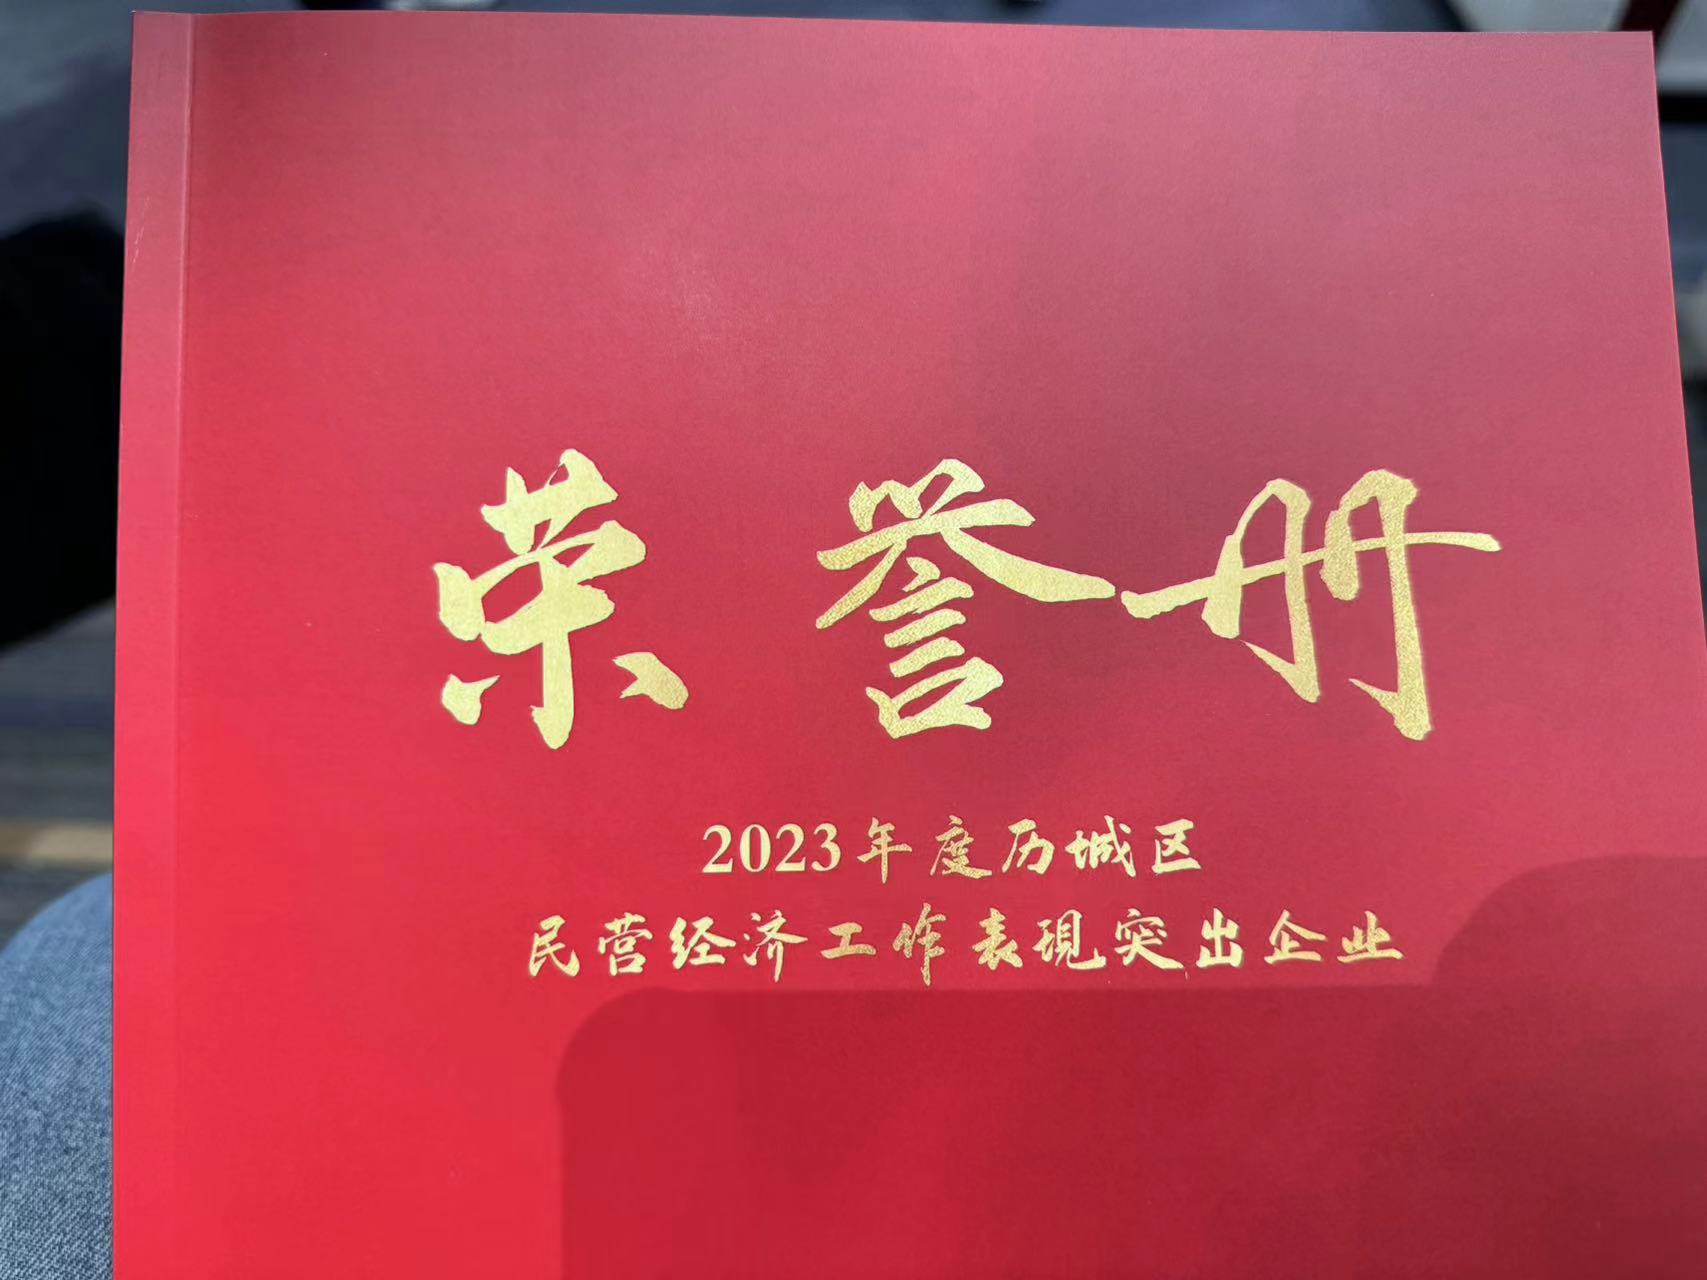 荣誉册
2023年度历城区
民营经济工作表现突出企业